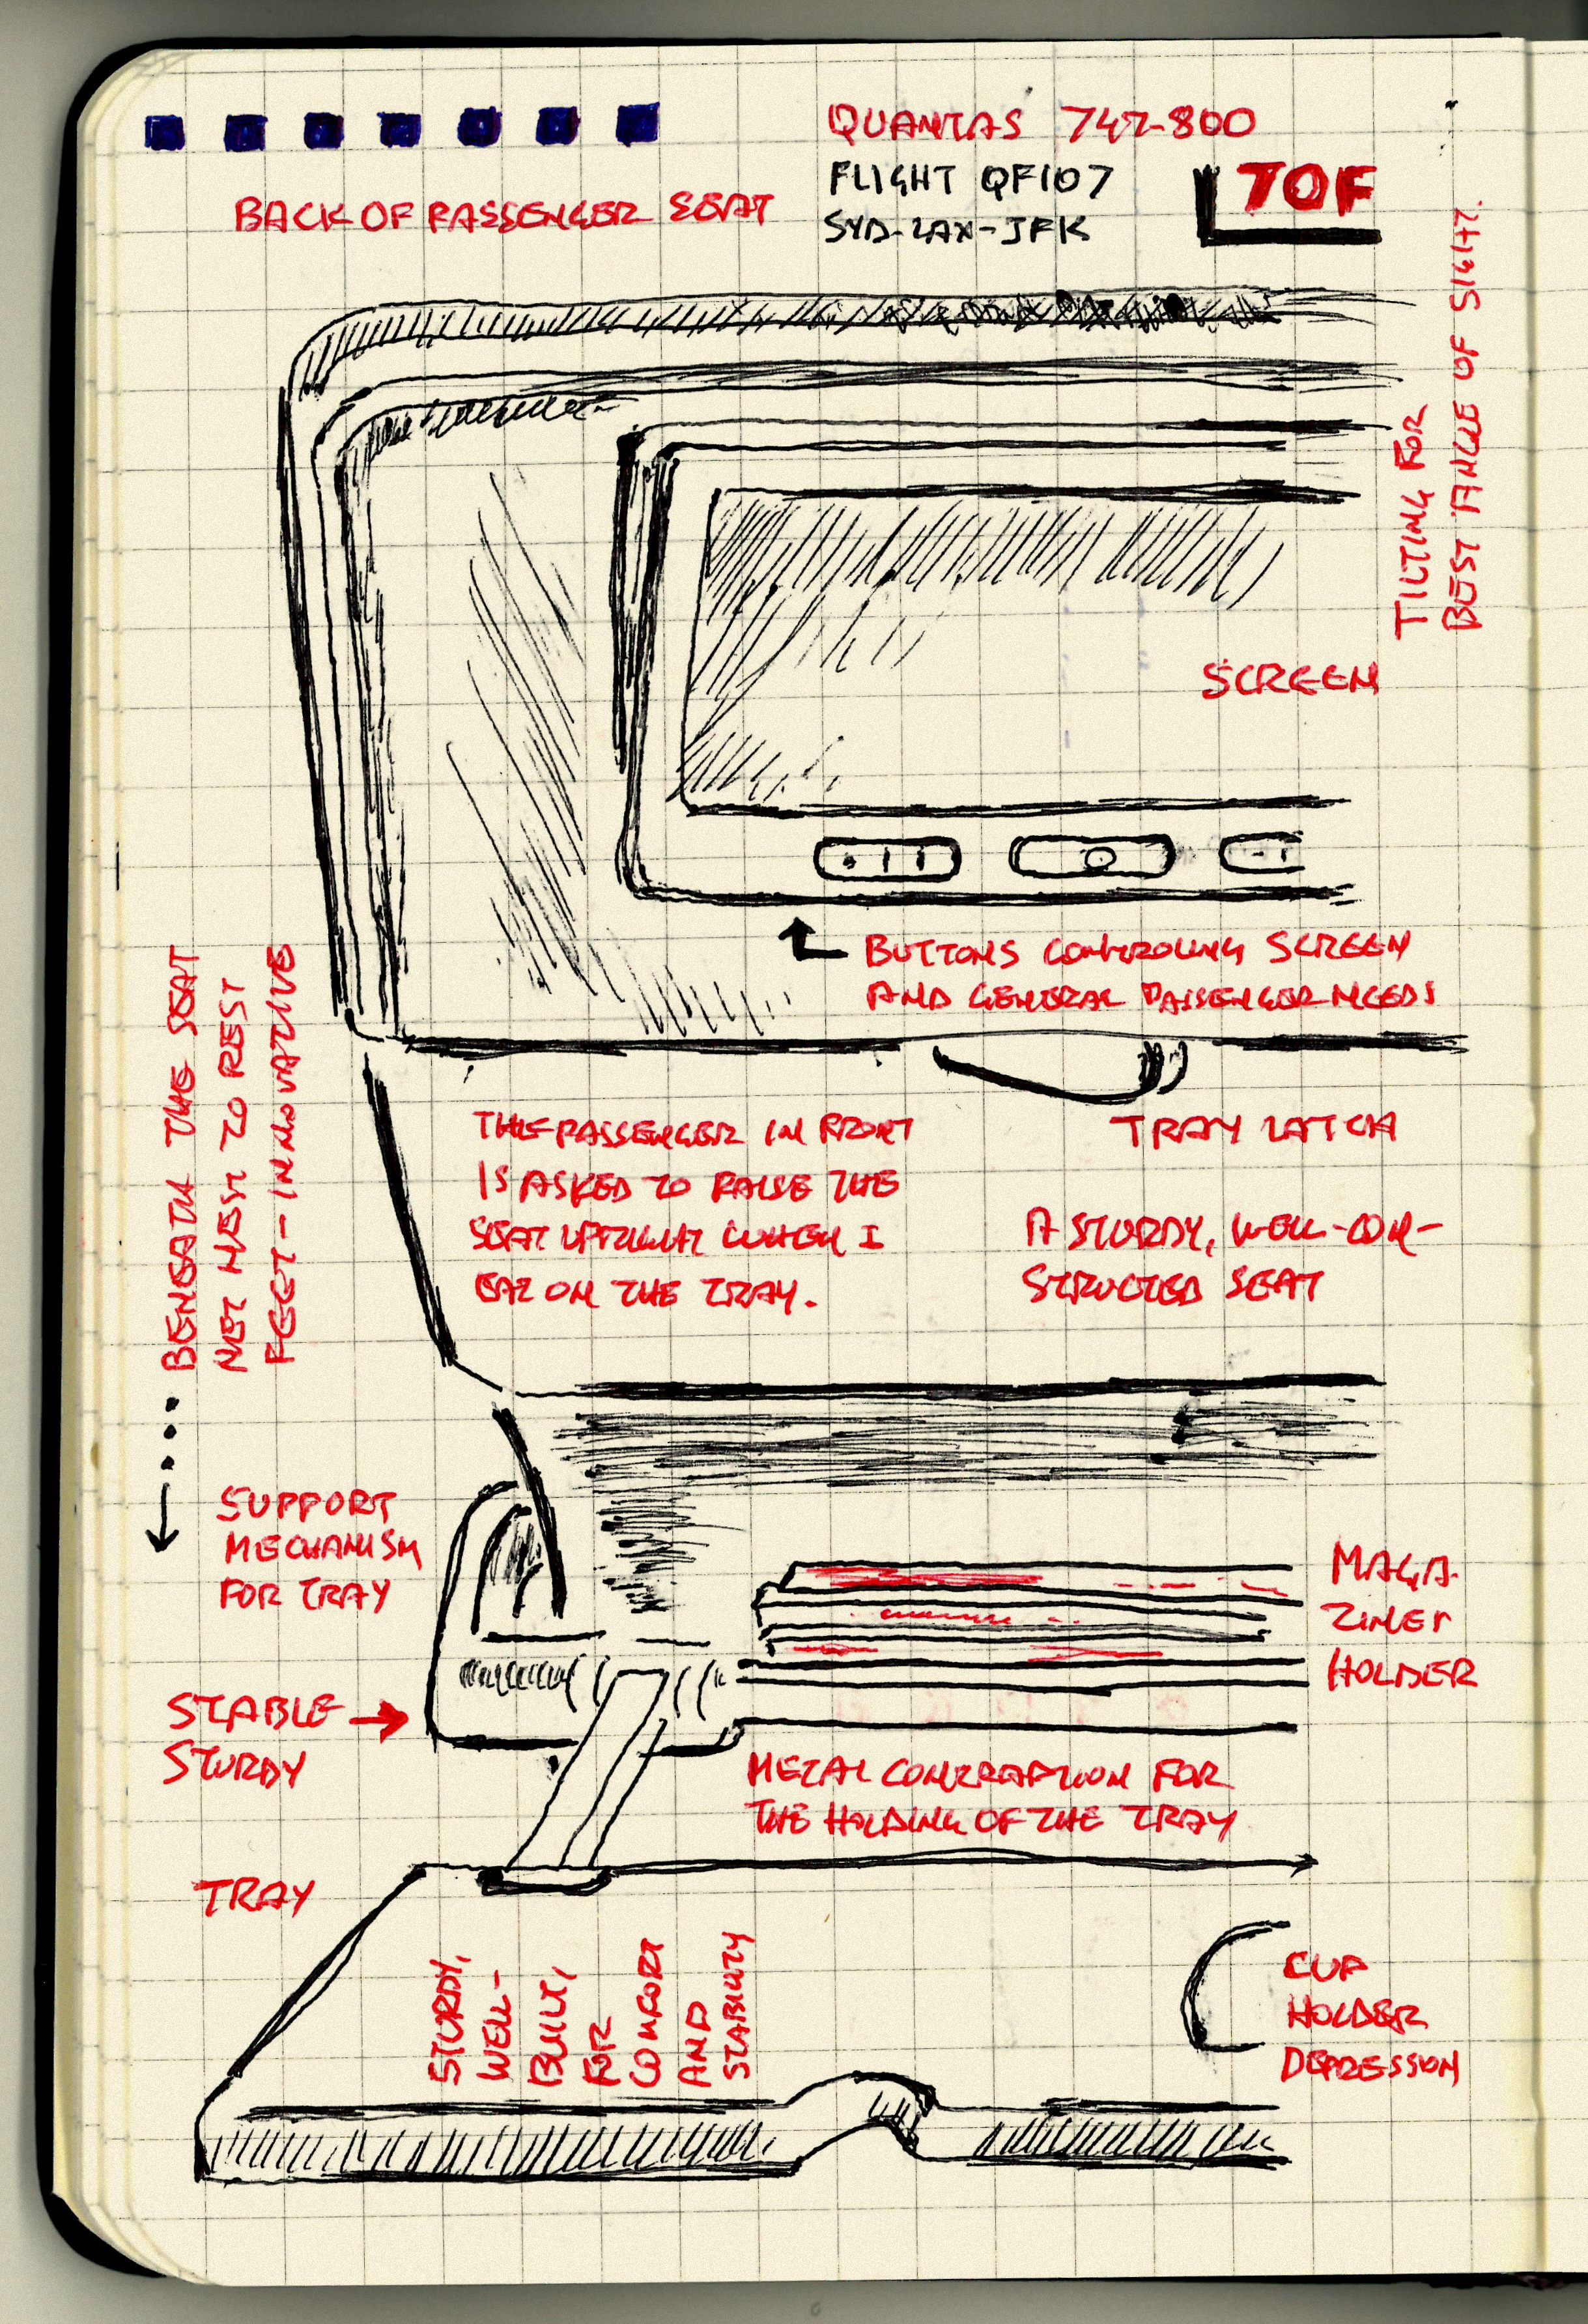 QUANTAS 747-800
FLIGHT QF107
SYD-LAX-JFK
70F
BACK OF PASSENGER SEAT
TILTING FOR
BEST ANGLE OF SIGHT.
SCREEN
BUTTONS CONTROLING SCREEN
AND GENERAL PASSENGER NEEDS
BENEATH THE SEAT
NET MESH TO REST
FEET - INNOVATIVE
THE PASSENGER IN FRONT
IS ASKED TO RAISE THE
SEAT UPRIGHT WHEN I
EAT ON THE TRAY.
TRAY LATCH
A STURDY, WELL-CON-
STRUCTED SEAT
SUPPORT
MECHANISM
FOR TRAY
MAGA-
ZINES
HOLDER
STABLE
STURDY
METAL CONTRAPTION FOR
THE HOLDING OF THE TRAY
TRAY
STURDY,
WELL-
BUILT,
FOR
COMFORT
AND
STABILITY
CUP
HOLDER
DEPRESSION